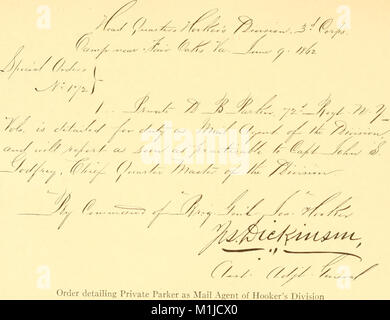 Head Quarters Hooker's Division 3d Corps.
Camp near Fair Oaks Va. June 9. 1862
Special Orders
No 172
1. Private D B Parker, 72d Regt N. Y.
Vols. is detailed for duty as Mail Agent of the Division
and will report as soon as practicable to Capt John S.
Godfrey, Chief Quarter Master of the Division
By Command of Brig Genl Jos Hooker
Jos Dickinson,
Asst. Adjt. General
Order detailing Private Parker as Mail Agent of Hooker's Division
alamy stock photo
M1JCX0
www.alamy.com